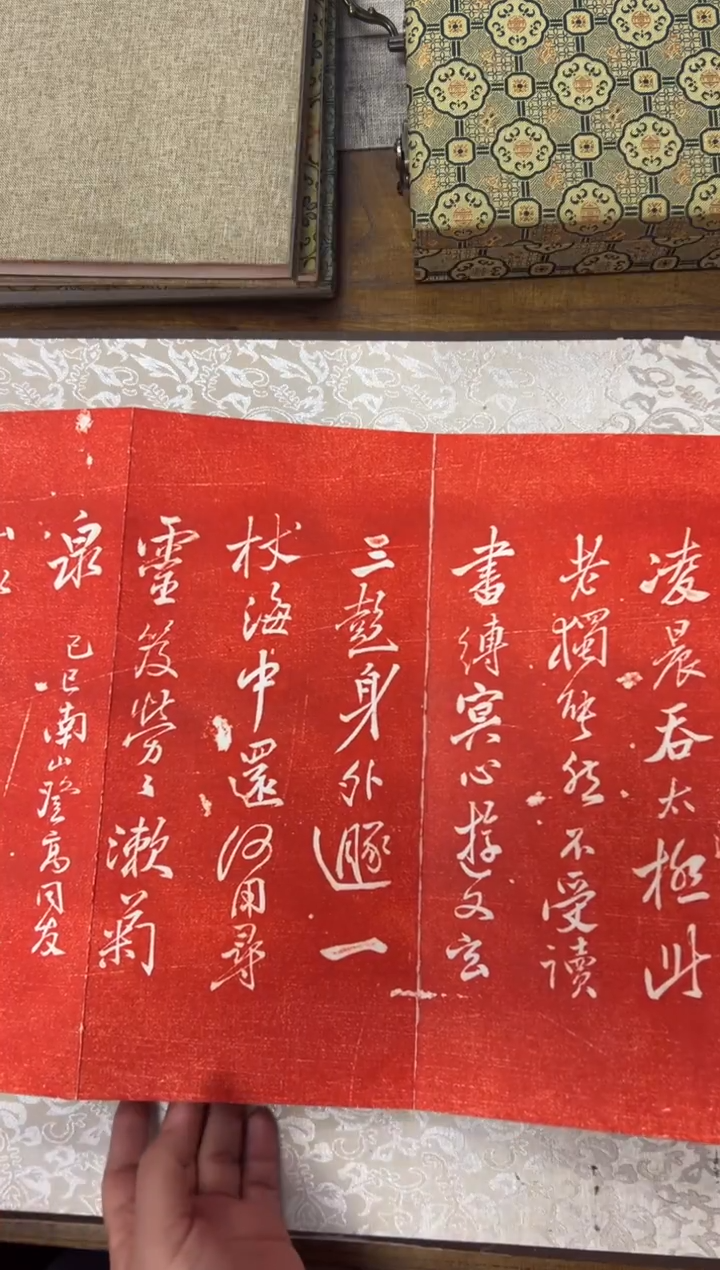 凌晨吞太極此
老獨能然不受讀
書縛冥心遊文玄
三彭身外遯一
杖海中還何用尋
靈笈勞〻漱菊
泉 己巳南山登高同友